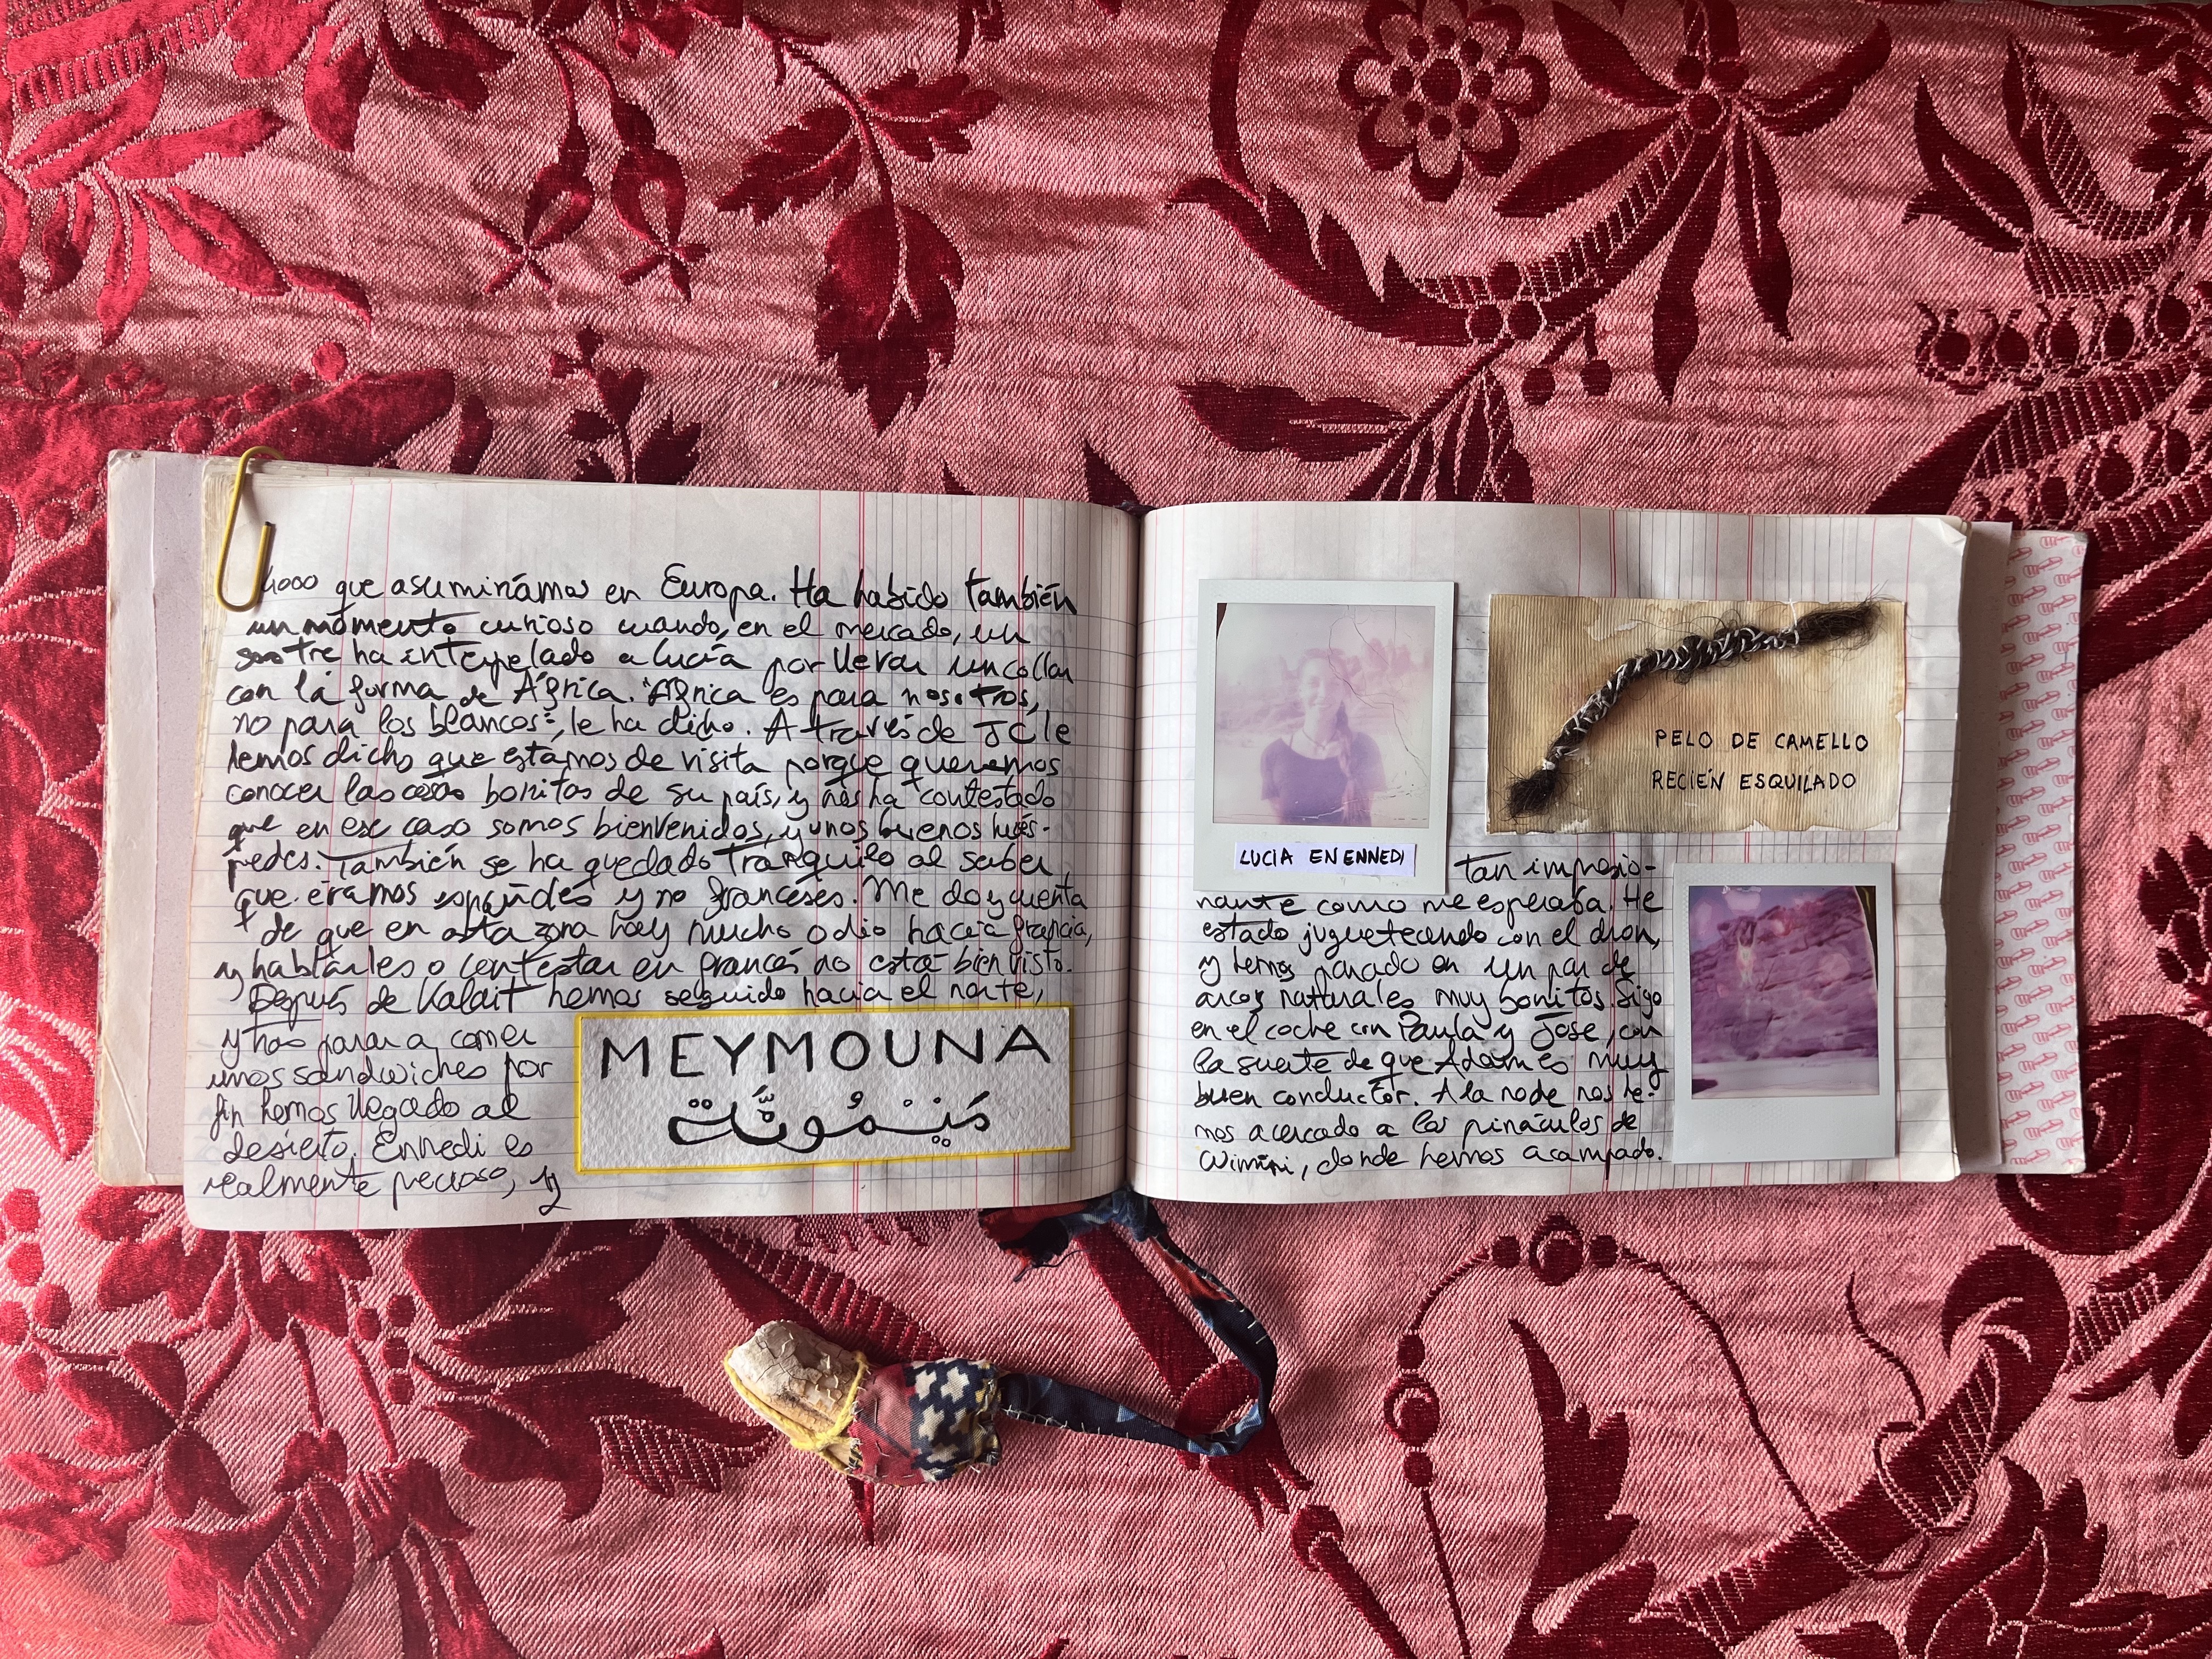 que asumiríamos en Europa. Ha habido también
un momento curioso cuando, en el mercado, un
sastre ha interpelado a Lucía por llevar un collar
con la forma de África. "África es para nosotros,
no para los blancos", le ha dicho. A través de JC le
hemos dicho que estamos de visita porque queremos
conocer las cosas bonitas de su país, y nos ha contestado
que en ese caso somos bienvenidos, y unos buenos hués-
pedes. También se ha quedado tranquilo al saber
que éramos españoles y no franceses. Me doy cuenta
de que en esta zona hay mucho odio hacia Francia,
y hablarles o contestar en francés no está bien visto.
Después de Kalait hemos seguido hacia el norte,
y tras parar a comer
unos sandwiches por
fin hemos llegado al
desierto. Ennedi es
realmente precioso, y
MEYMOUNA
مَيْمُونَة
LUCIA EN ENNEDI
PELO DE CAMELLO
RECIÉN ESQUILADO
tan impresio-
nante como me esperaba. He
estado jugueteando con el dron,
y hemos parado en un par de
arcos naturales muy bonitos. Sigo
en el coche con Paula y Jose, con
la suerte de que Adam es muy
buen conductor. A la noche nos he-
mos acercado a los pináculos de
donde hemos acampado.